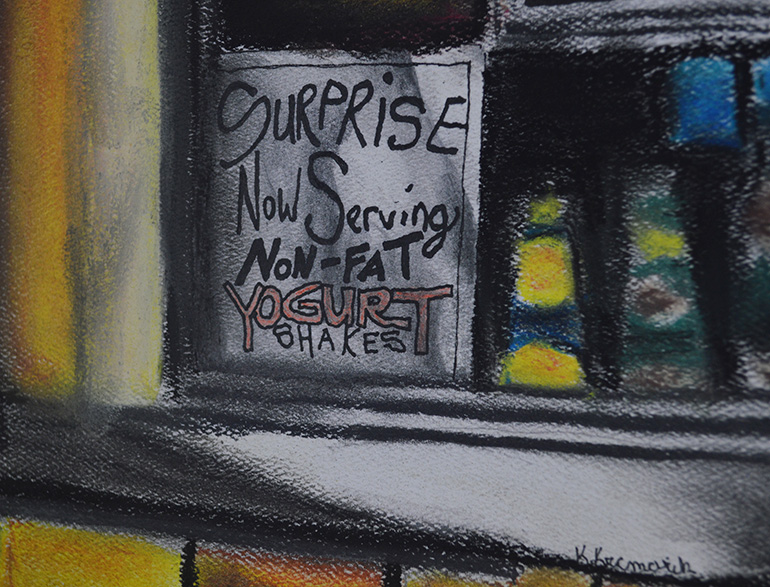 SURPRISE
Now Serving
NON-FAT
YOGURT
SHAKES